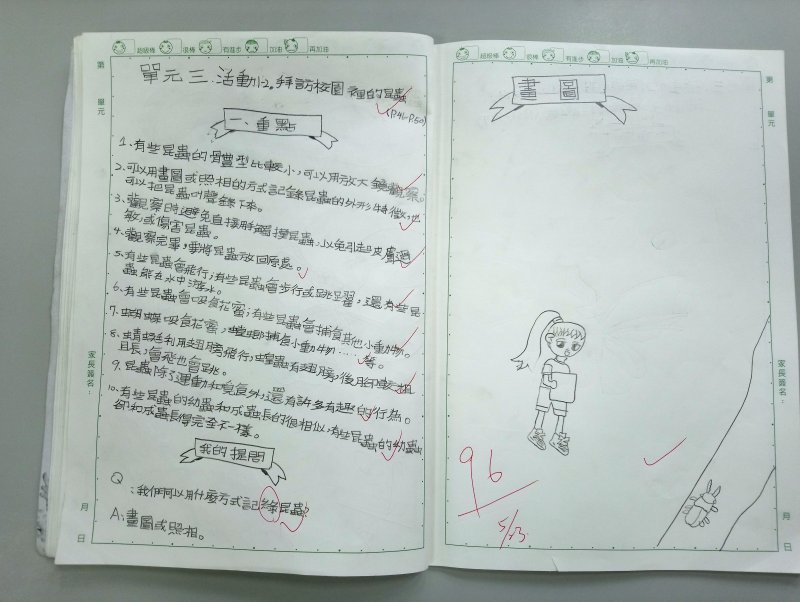 超級棒 很棒 有進步 加油 再加油
第
單元
單元三 活動2. 拜訪校園裡的昆蟲
(P.41-P.50)
一、重點
1、有些昆蟲的體型比較小，可以用放大鏡觀察。
2、可以用畫圖或照相的方式記錄昆蟲的外形特徵，也
可以把昆蟲叫聲錄下來。
3、觀察時，避免直接用手觸摸昆蟲，以免引起皮膚過
敏，或傷害昆蟲。
4、觀察完畢，要將昆蟲放回原處。
5、有些昆蟲會飛行；有些昆蟲會步行或跳躍，還有些昆
蟲能在水中游水。
6、有些昆蟲會吸食花蜜；有些昆蟲會捕食其他小動物。
7、蝴蝶吸食花蜜，螳螂捕食小動物……等。
8、蜻蜓利用翅膀飛行；蝗蟲有翅膀，後腳粗
且長，會飛也會跳。
9、昆蟲除了運動和覓食外，還有許多有趣的行為。
10、有些昆蟲的幼蟲和成蟲長的很相似，有些昆蟲的幼蟲
卻和成蟲長得完全不一樣。
我的提問
Q：我們可以用什麼方式記錄昆蟲？
A：畫圖或照相。
家長簽名：
月
日
超級棒 很棒 有進步 加油 再加油
第
單元
畫圖
家長簽名：
96
5/23
月
日